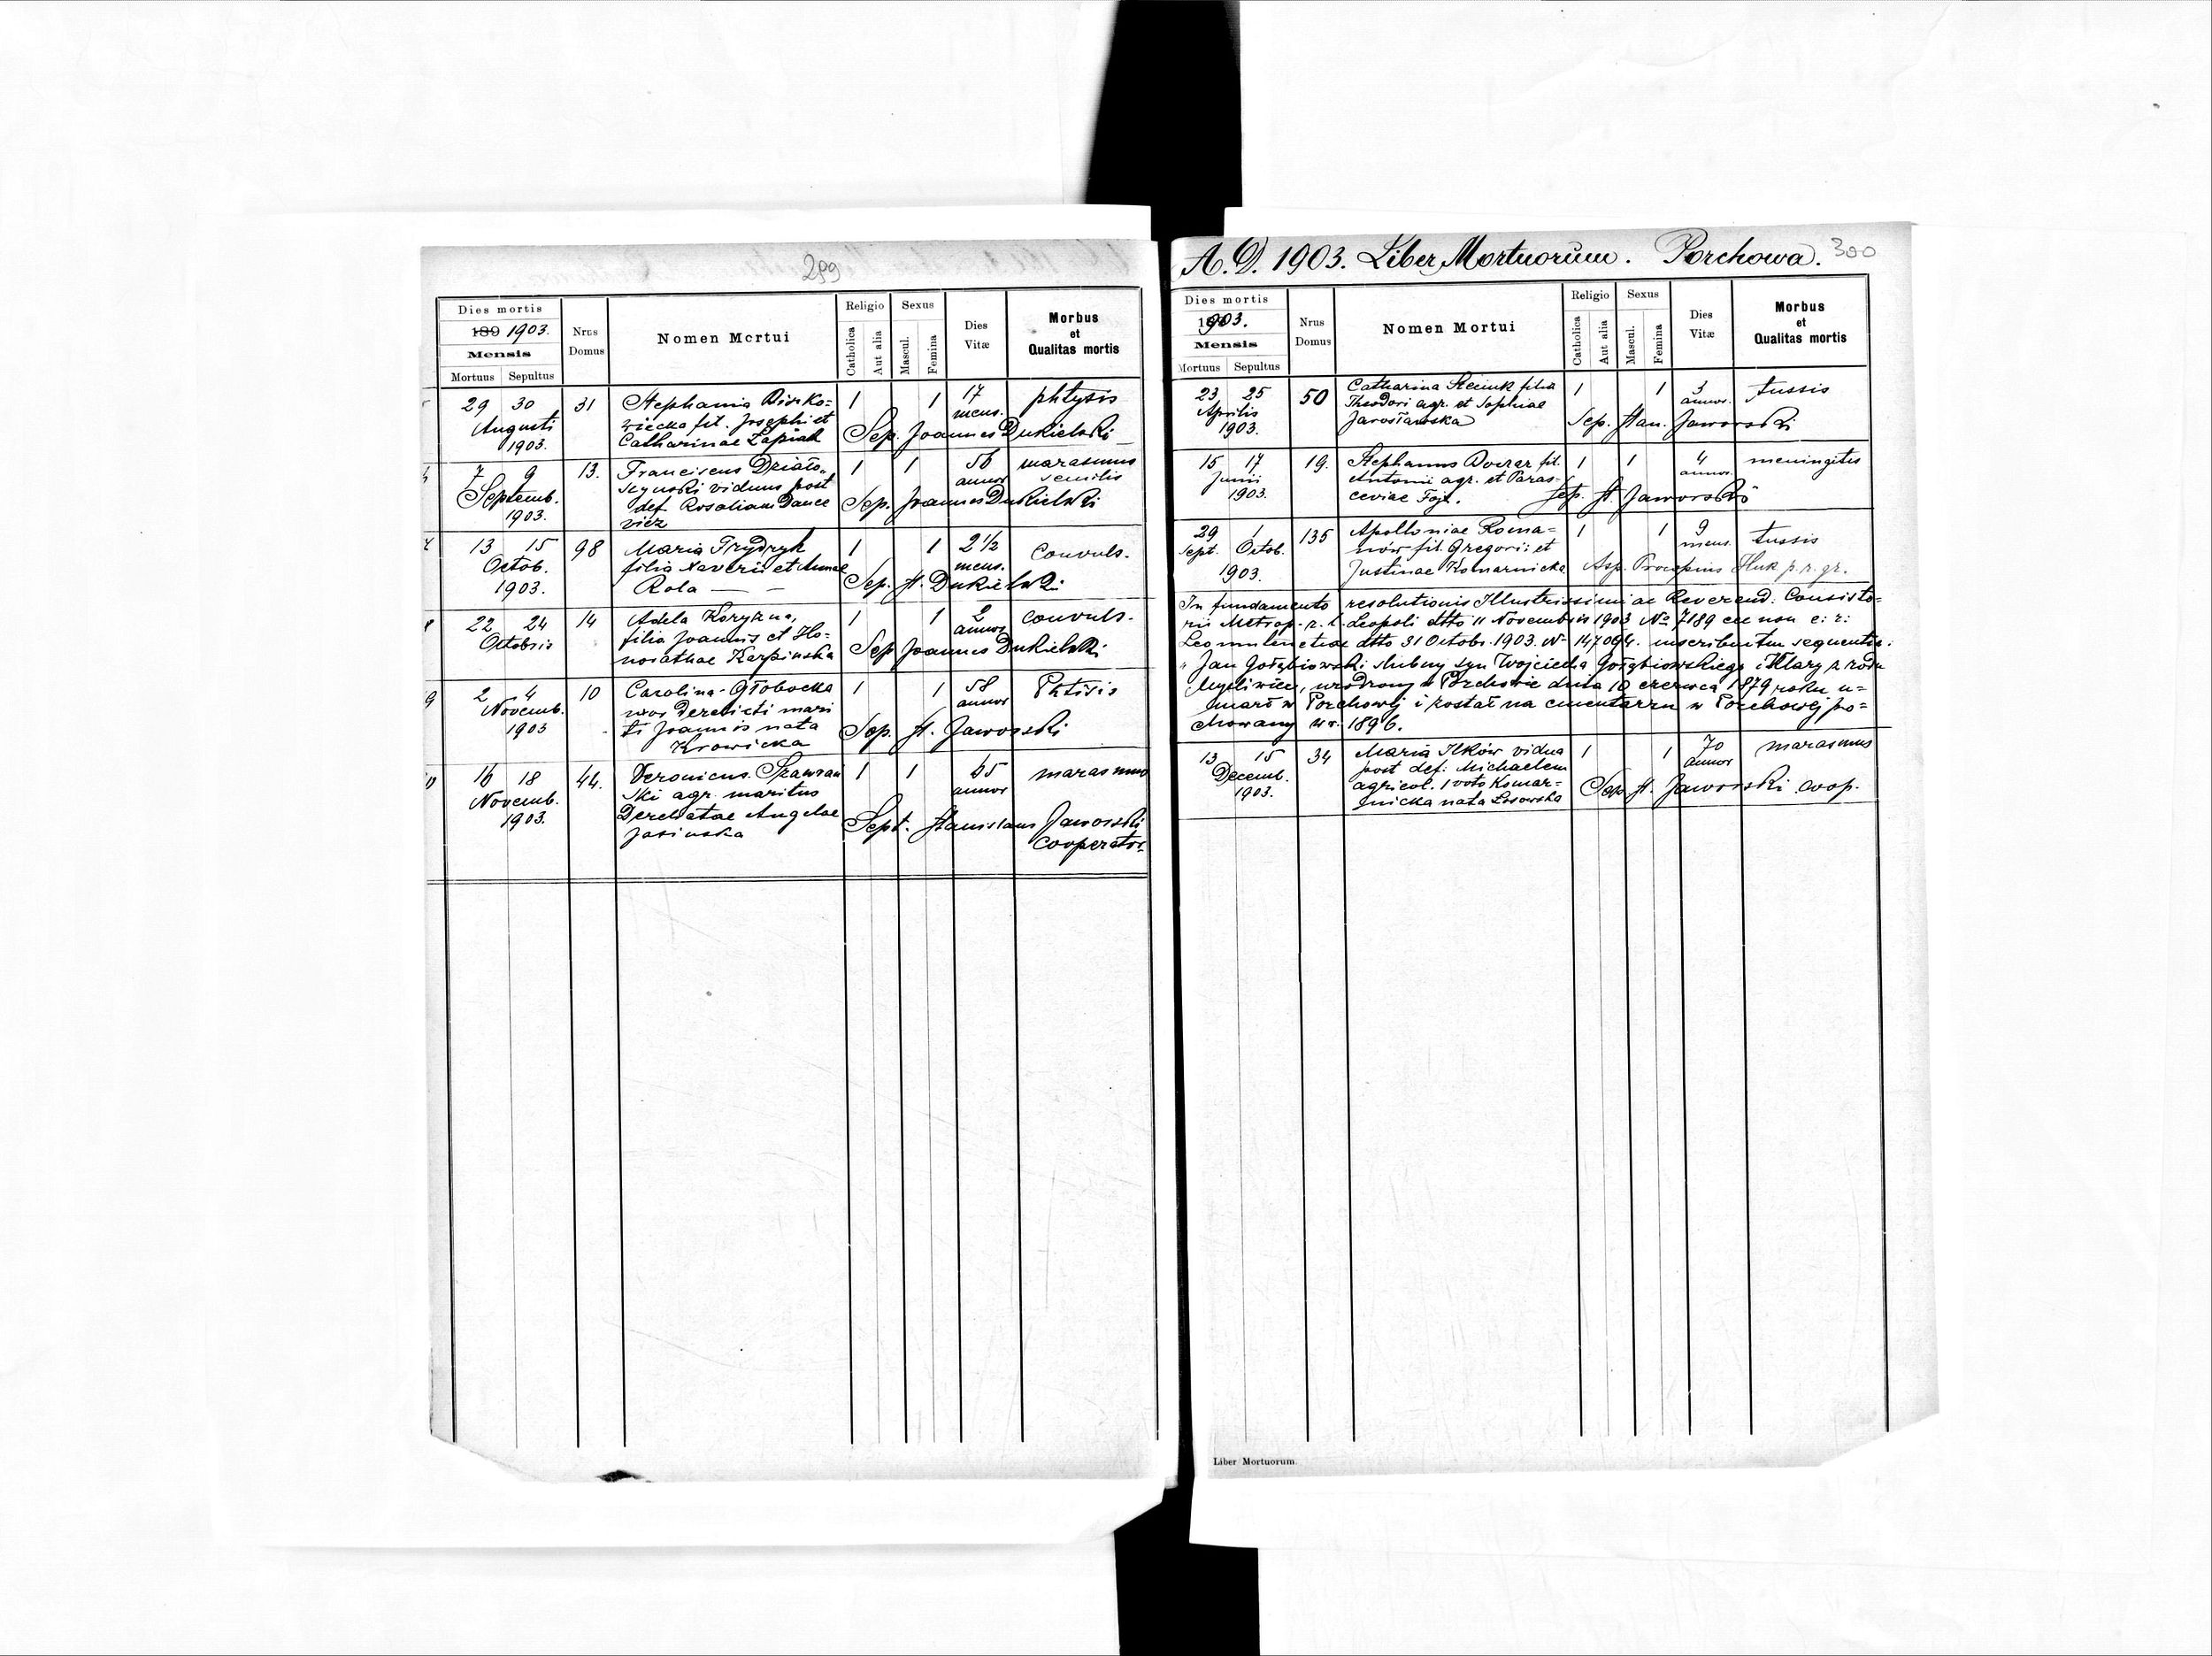 299
Dies mortis
189 1903.
Mensis
Mortuus Sepultus
Nrus Domus
Nomen Mortui
Religio
Catholica
Aut alia
Sexus
Mascul.
Femina
Dies Vitæ
Morbus et Qualitas mortis
29 30 31 Stephania 1 1 17 phtysis
Augusti fil. Josephi et mens.
1903. Catharinae Łapiak Sep. Joannes Dukielski
7 9 13. Franciscus Działo- 1 1 56 marasmus
Septemb. szynski viduus post annor. senilis
1903. def. Rosaliam Dance Sep. Joannes Dukielski
vicz
13 15 98 Maria Frydryk 1 1 2 1/2 Convuls.
Octob. filia Xaverii et Annae mens.
1903. Rola — — Sep. J. Dukielski
22 24 14 Adela Koryzna, 1 1 2 convuls.
Octobris filia Joannis et Ho- annor.
norathae Karpinska Sep. Joannes Dukielski
9 2 4 10 Carolina Głobocka 1 1 58 Phtisis
Novemb. uxor derelicti mari annor
1903 ti Joannis nata Sep. St. Jaworski
Krowicka
16 18 44. Veronicus 1 1 65 marasmus
Novemb. ski agr. maritus annor
1903. Derelictae Angelae Sept. Stanislaus Jaworski
Jasinska cooperator.
A.D. 1903. Liber Mortuorum. Porchowa. 300
Dies mortis
1903.
Mensis
Mortuus Sepultus
Nrus Domus
Nomen Mortui
Religio
Catholica
Aut alia
Sexus
Mascul.
Femina
Dies Vitæ
Morbus et Qualitas mortis
23 25 50 Catharina filia 1 1 3 tussis
Aprilis Theodori agr. et Sophiae annor.
1903. Jarosławska Sep. Stan. Jaworski
15 17 19. Stephanus fil. 1 1 4 meningitis
Junii Antonii agr. et Paras- annor.
1903. ceviae Fajt. Sep. St. Jaworski
29 1 135 Apolloniae Roma- 1 1 9 tussis
Sept. Octob. nów fil. Gregorii et mens.
1903. Justinae Komarnicka Asp. Procopius Huk p. r. gr.
In fundamento resolutionis Illustrissimi ac Reverend. Consisto-
rii Metrop. r. l. Leopoli dtto 11 Novembris 1903 No 7189 nec non c. r.
dtto 31 Octobr. 1903. No 147094. inscribuntur sequentia:
"Jan Gołąbiowski ślubny syn Wojciecha Gołąbiowskiego i Klary z rodu
Myśliwiec, urodzony w Porchowie dnia 10 czerwca 1879 roku u-
marł w Porchowej i został na cmentarzu w Porchowej po-
chowany w r. 1896.
13 15 34 Maria Ilków vidua 1 1 70 marasmus
Decemb. post def. Michaelem annor
1903. agricol. 1 voto Komar- Sep. St. Jaworski coop.
nicka nata Łosowska
Liber Mortuorum.